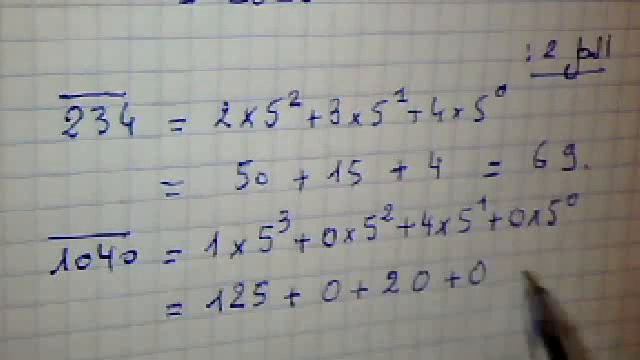 : 2
234 = 2×5² + 3×5¹ + 4×5⁰
= 50 + 15 + 4 = 69.
1040 = 1×5³ + 0×5² + 4×5¹ + 0×5⁰
= 125 + 0 + 20 + 0